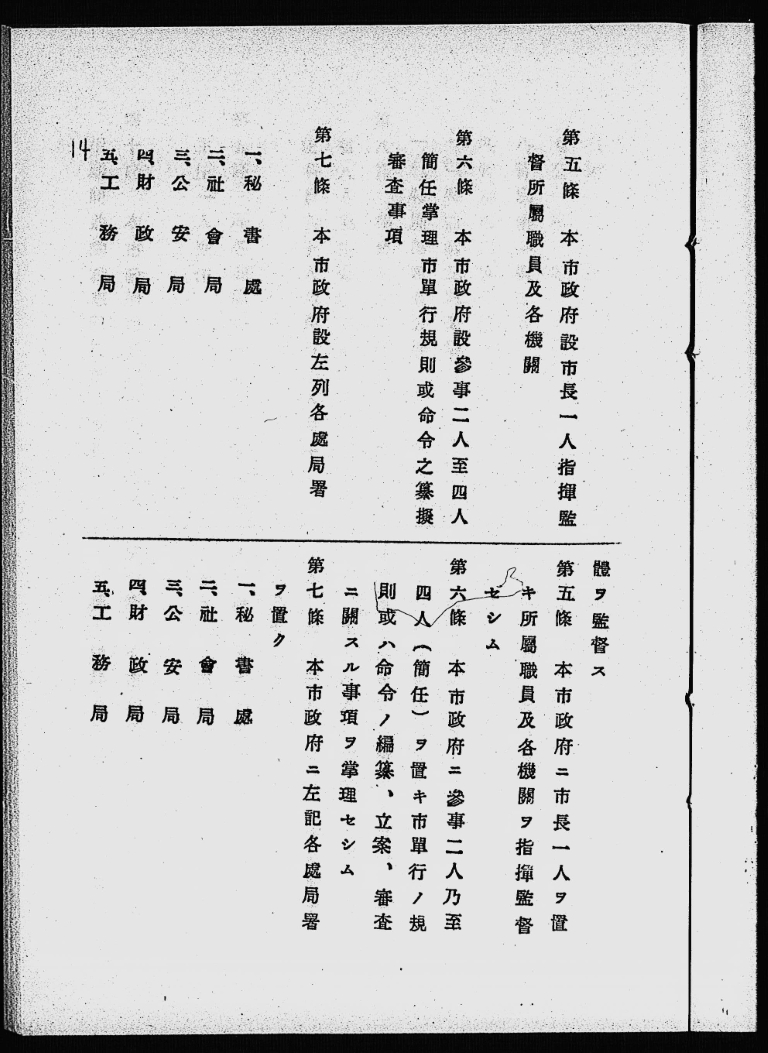 第五條 本市政府設市長一人指揮監
督所屬職員及各機關
第六條 本市政府設參事二人至四人
簡任掌理市單行規則或命令之纂擬
審査事項
第七條 本市政府設左列各處局署
一、秘書處
二、社會局
三、公安局
四、財政局
五、工務局
14
體ヲ監督ス
第五條 本市政府ニ市長一人ヲ置
キ所屬職員及各機關ヲ指揮監督
セシム
第六條 本市政府ニ參事二人乃至
四人(簡任)ヲ置キ市單行ノ規
則或ハ命令ノ編纂、立案、審査
ニ關スル事項ヲ掌理セシム
第七條 本市政府ニ左記各處局署
ヲ置ク
一、秘書處
二、社會局
三、公安局
四、財政局
五、工務局